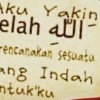 Aku Yakin
الله
elah
rencanakan sesuatu
ang Indah
ntuk'ku